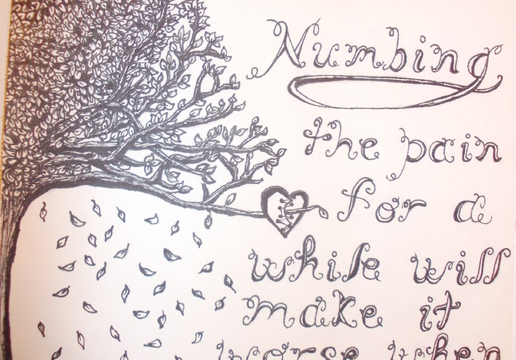 Numbing
the pain
for a
while will
make it
worse when